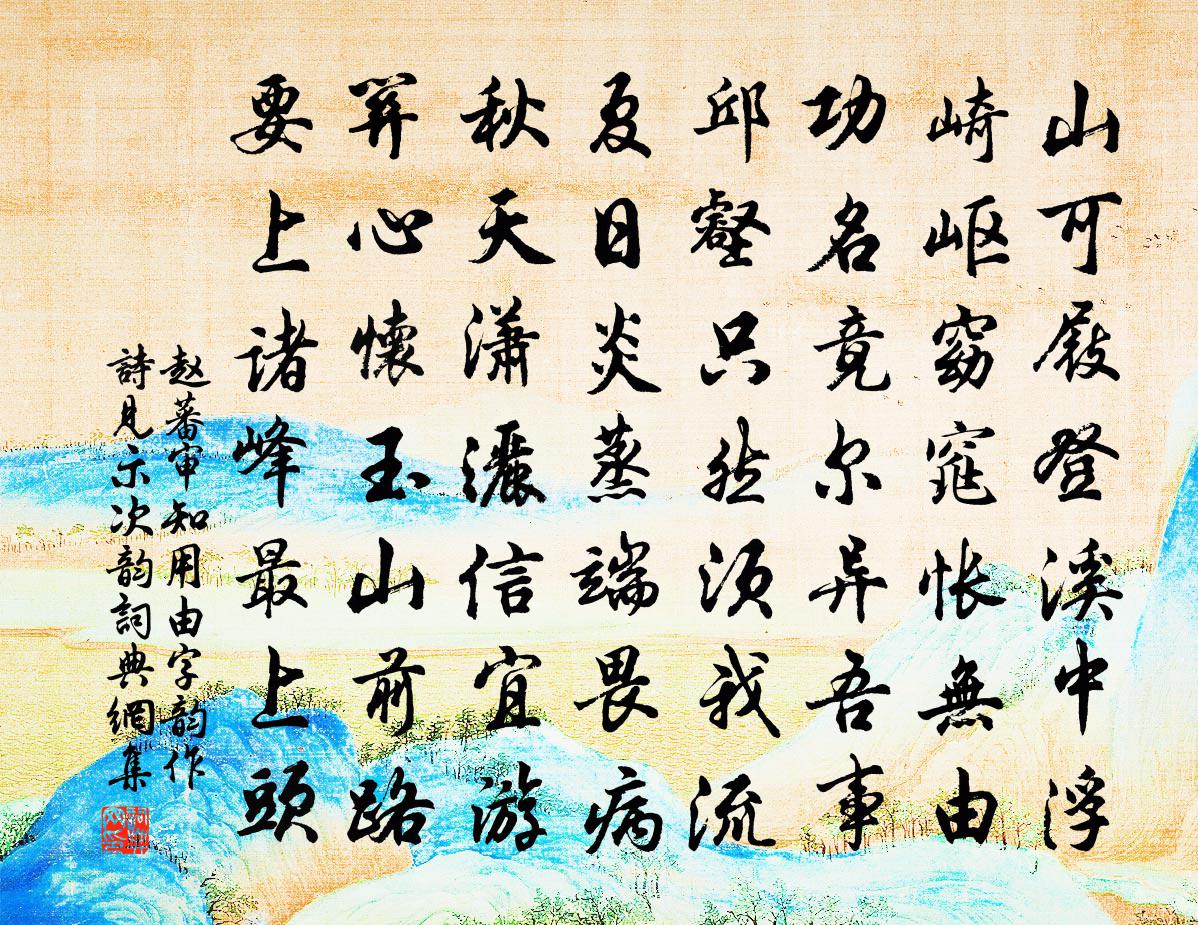 山可屐登溪中浮
崎岖窈窕怅無由
功名竟尔异吾事
邱壑只然须我流
夏日炎蒸端畏病
秋天潇灑信宜游
笄心懷玉山前路
要上诸峰最上頭
赵蕃审知用由字韵作
詩見示次韵詞典網集